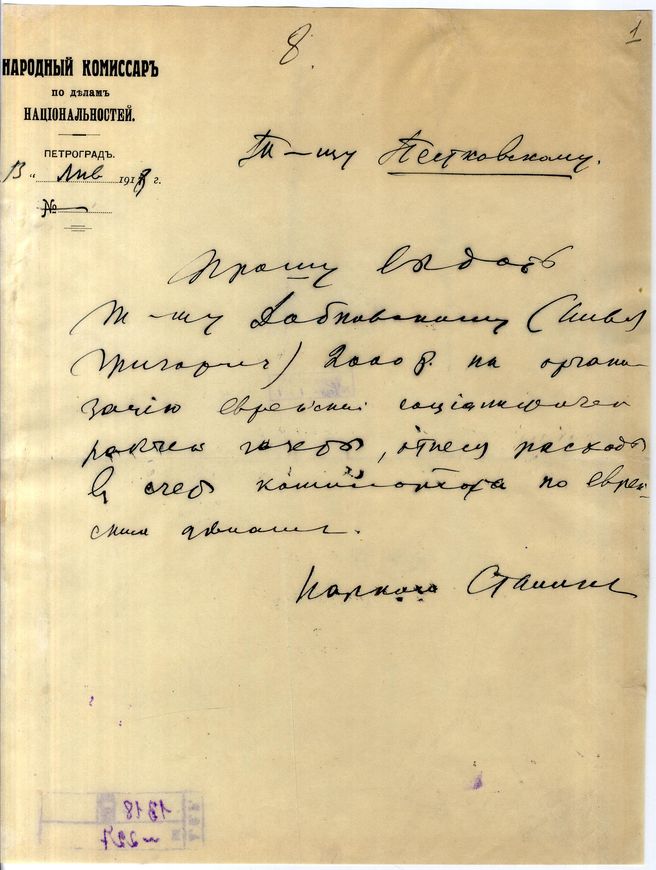 8.
1
НАРОДНЫЙ КОМИССАРЪ
ПО ДѢЛАМЪ
НАЦІОНАЛЬНОСТЕЙ.
ПЕТРОГРАДЪ.
13 " янв 1918 г.
№
Т-щу Пестковскому.
Прошу выдать
т-щу Добковскому (
Григорич) 2000 р. на органи-
зацію еврейских
рабочей газеты, отнеся расходъ
в счет комиссариата по еврей-
ским делам.
Нарком Сталин
1318
227